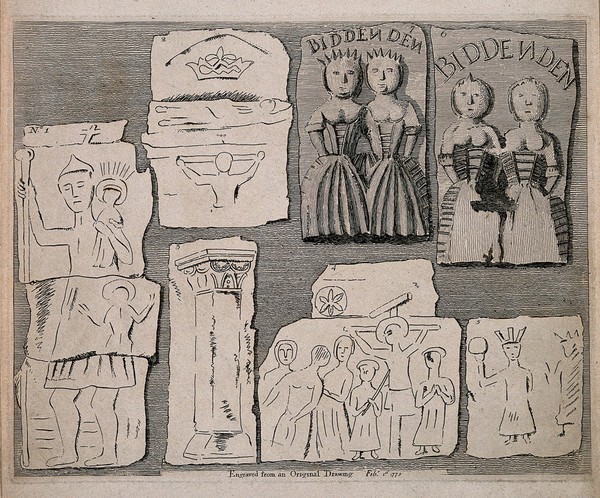 BIDDEN DEN
BIDDENDEN
Nº 1
Engraved from an Original Drawing Feb.